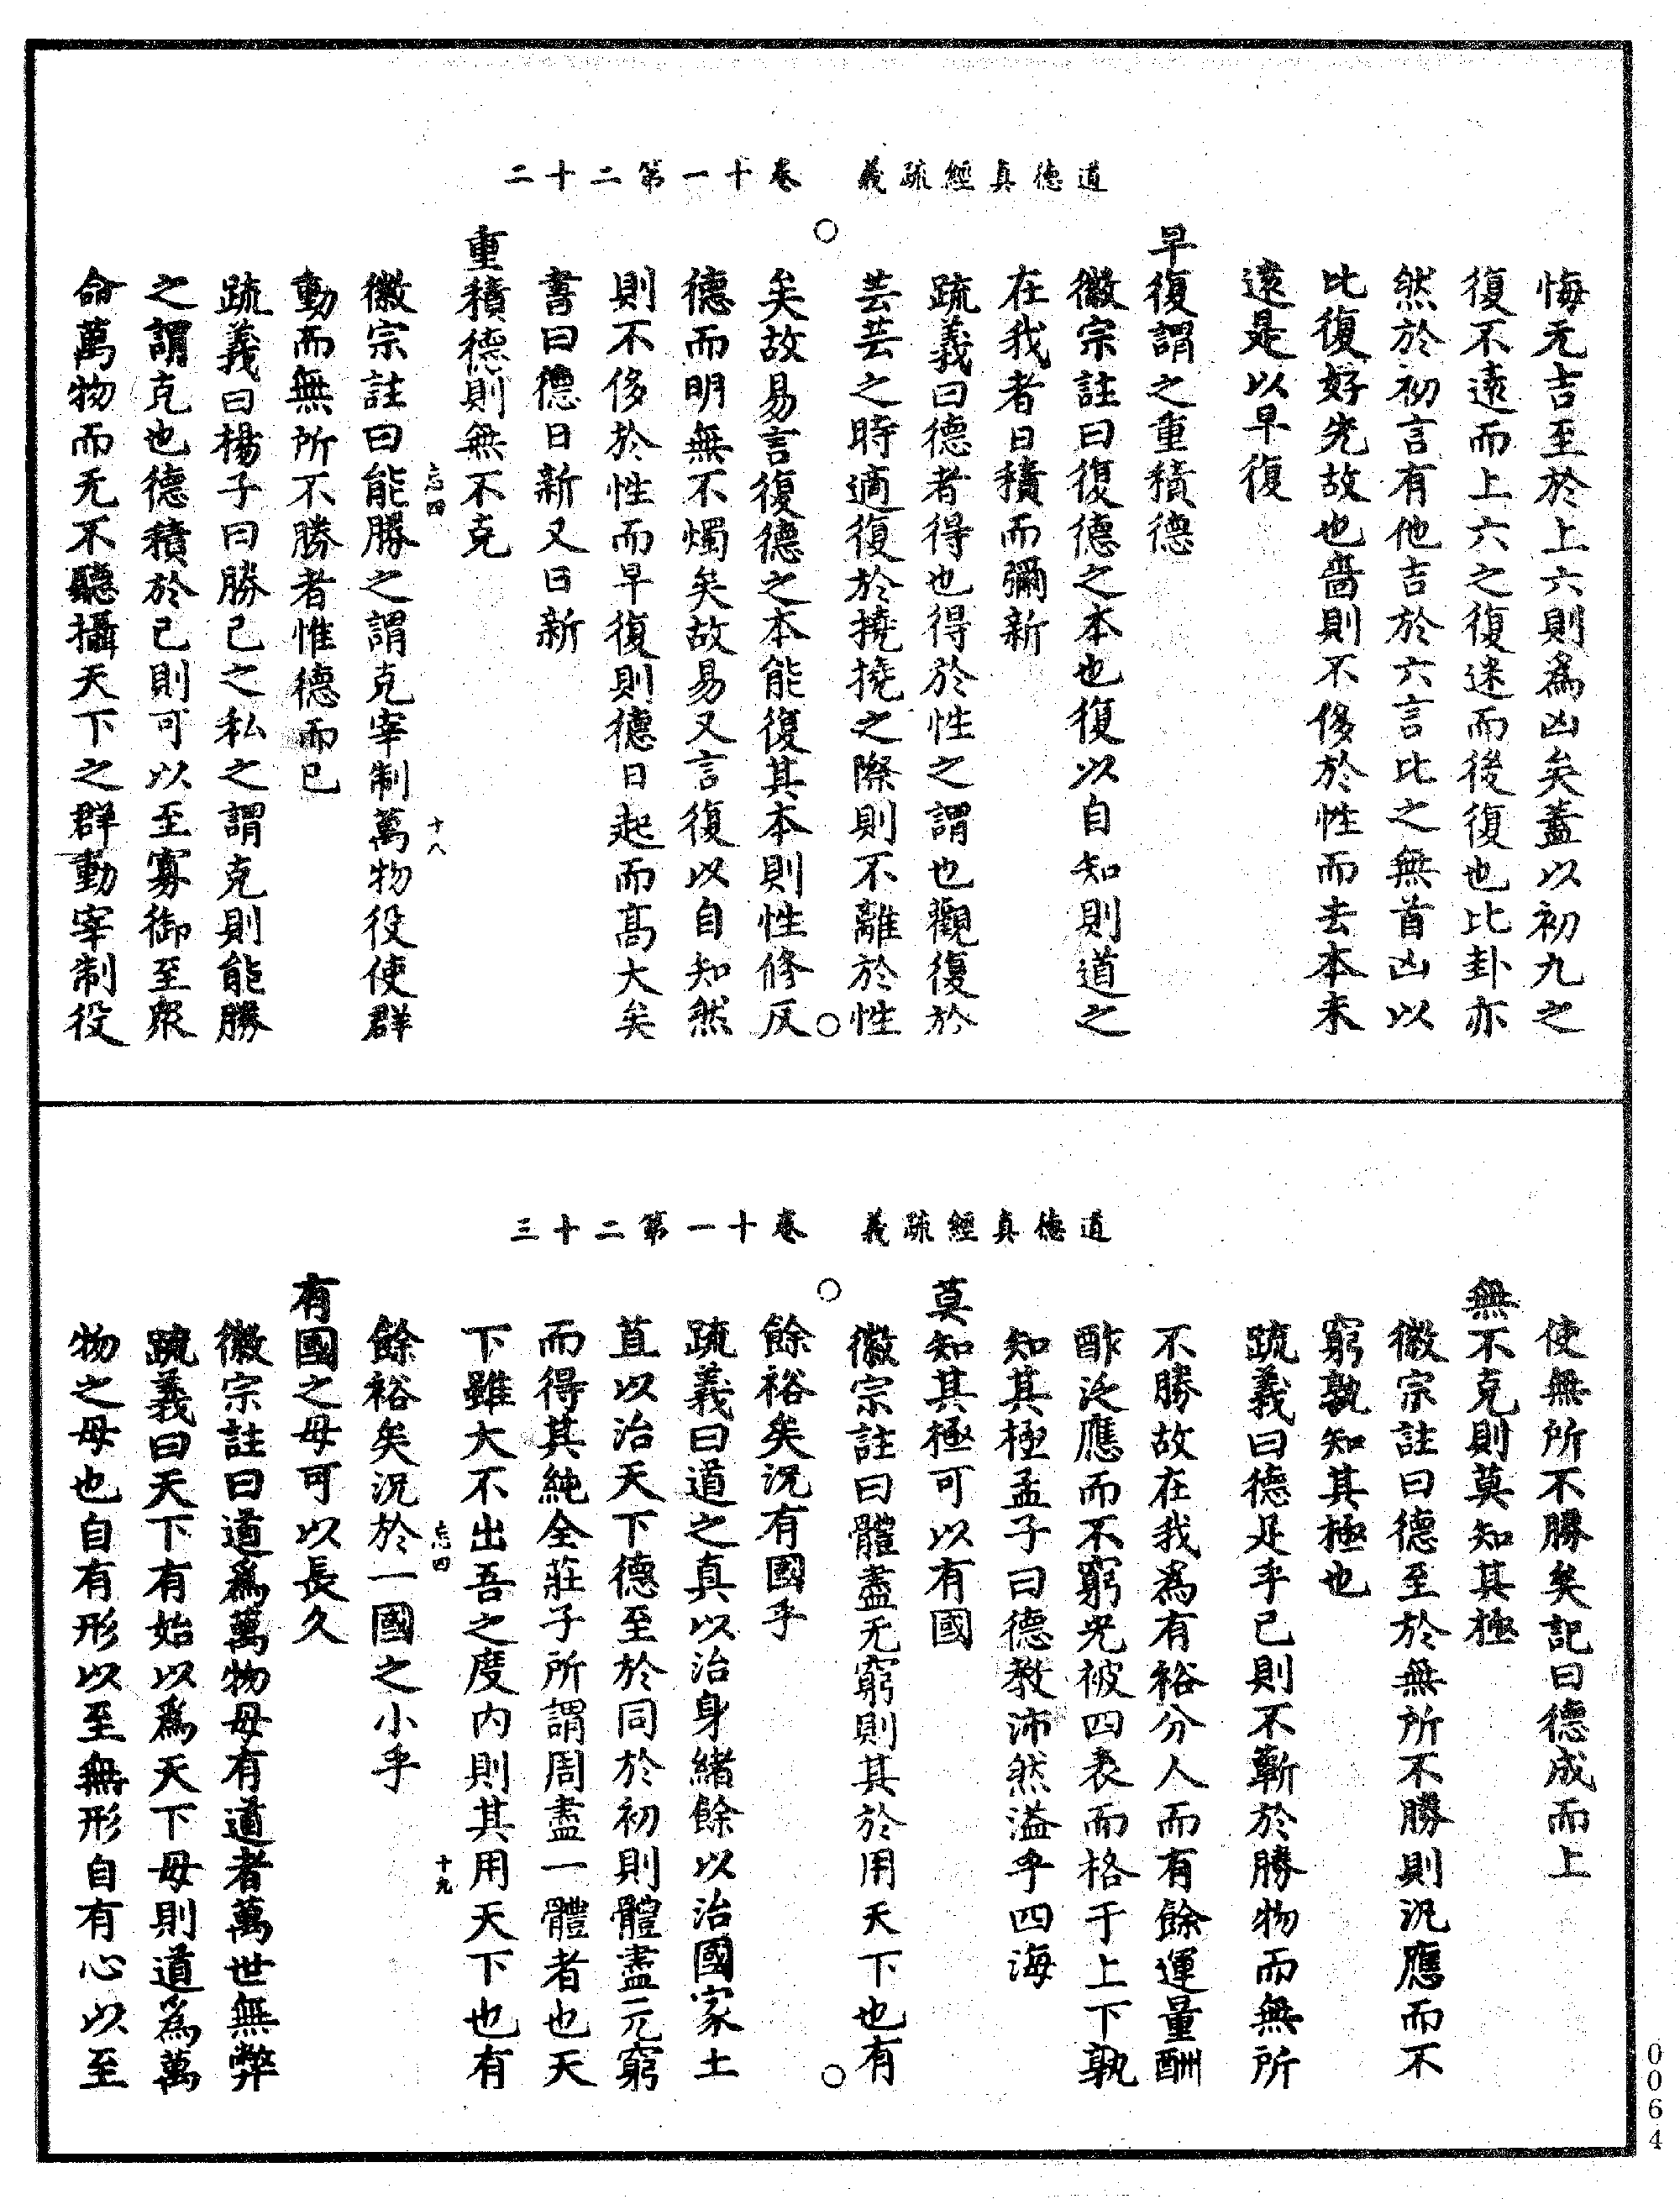 道德真經疏義　卷十一第二十二
悔无吉至於上六則為凶矣蓋以初九之
復不遠而上六之復迷而後復也比卦亦
然於初言有他吉於六言比之無首凶以
比復好先故也嗇則不侈於性而去本未
遠是以早復
早復謂之重積德
徽宗註曰復德之本也復以自知則道之
在我者日積而彌新
疏義曰德者得也得於性之謂也觀復於
芸芸之時適復於撓撓之際則不離於性
矣故易言復德之本能復其本則性修反
德而明無不燭矣故易又言復以自知然
則不侈於性而早復則德日起而高大矣
書曰德日新又日新
重積德則無不克
忘四　十八
徽宗註曰能勝之謂克宰制萬物役使群
動而無所不勝者惟德而已
疏義曰楊子曰勝己之私之謂克則能勝
之謂克也德積於己則可以至寡御至眾
命萬物而无不聽攝天下之群動宰制役
道德真經疏義　卷十一第二十三
使無所不勝矣記曰德成而上
無不克則莫知其極
徽宗註曰德至於無所不勝則汎應而不
窮孰知其極也
疏義曰德足乎已則不蘄於勝物而無所
不勝故在我為有裕分人而有餘運量酬
酢泛應而不窮光被四表而格于上下孰
知其極孟子曰德教沛然溢乎四海
莫知其極可以有國
徽宗註曰體盡无窮則其於用天下也有
餘裕矣況有國乎
疏義曰道之真以治身緒餘以治國家土
苴以治天下德至於同於初則體盡无窮
而得其純全莊子所謂周盡一體者也天
下雖大不出吾之度內則其用天下也有
忘四　十九
餘裕矣況於一國之小乎
有國之母可以長久
徽宗註曰道為萬物母有道者萬世無弊
疏義曰天下有始以為天下母則道為萬
物之母也自有形以至無形自有心以至
0064